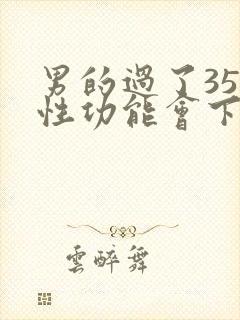 男的過了35
性功能會下
雲醉舞